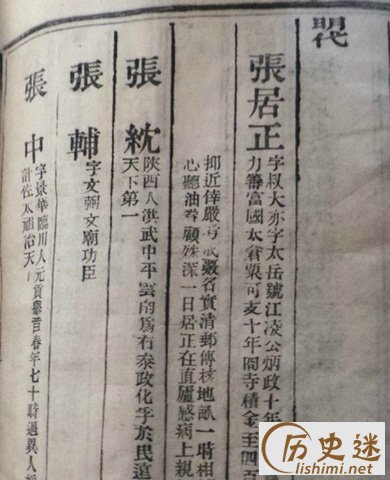 明代
張居正
字叔大亦字太岳號江凌公炳政十年
力籌富國太倉粟可支十年冏寺積金至四百
抑近倖嚴 嚴名實清郵傳核地畝一時相
心聽 眷顧殊深一日居正在直廬感病上親
張紞
陝西人洪武中平雲南為右泰政化孚於民遠
天下第一
張輔
字文弼文廟功臣
張中
字景華臨川人元貢舉 春年七十時遇異人
計性太祖治天
历史迷
lishimi.net